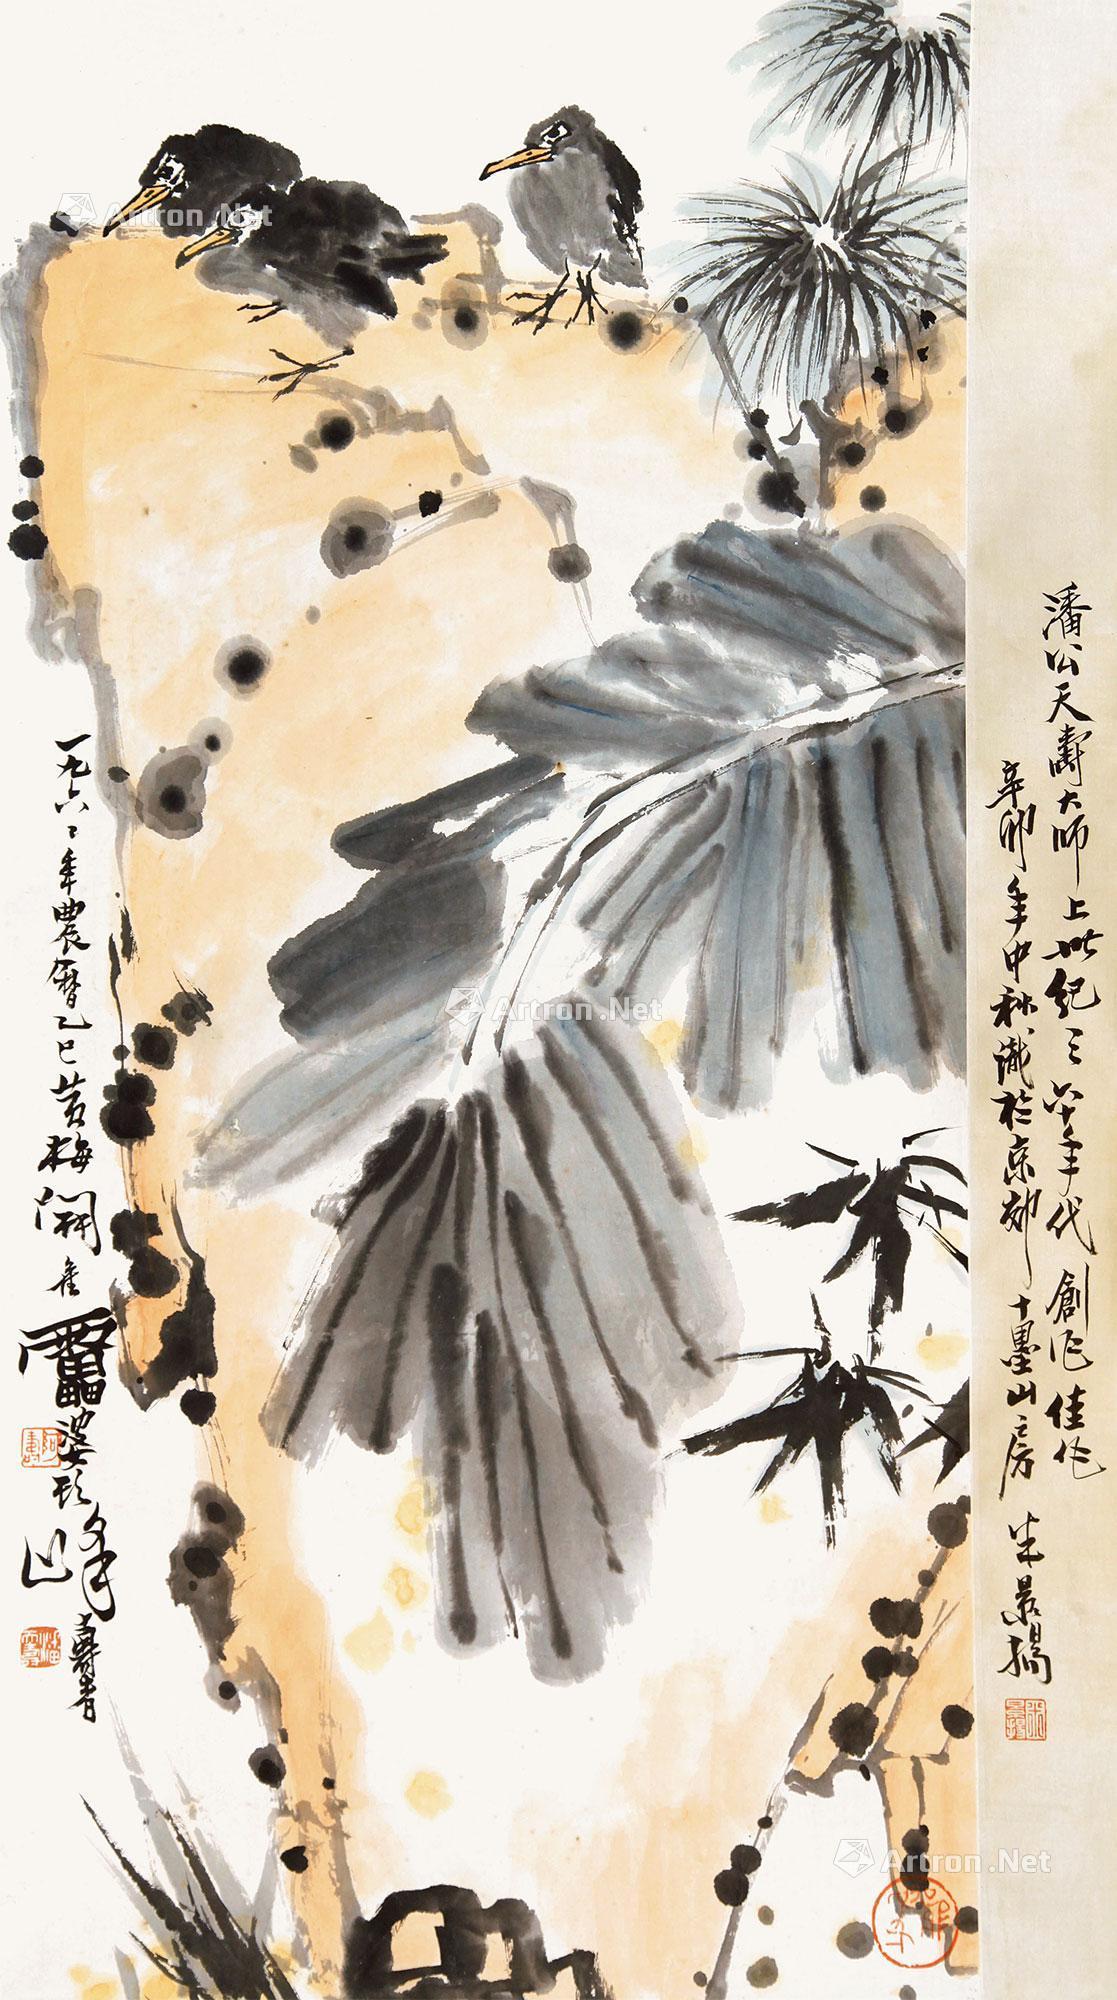 潘公天壽大師上世紀六十年代創作佳作
辛卯年中秋識於京郊十墨山房 米景揚
一九六 年農曆乙巳黃梅開 雷婆頭峯
壽者
Artron.Net
Artron.Net
Artron.Net
Artron.Net